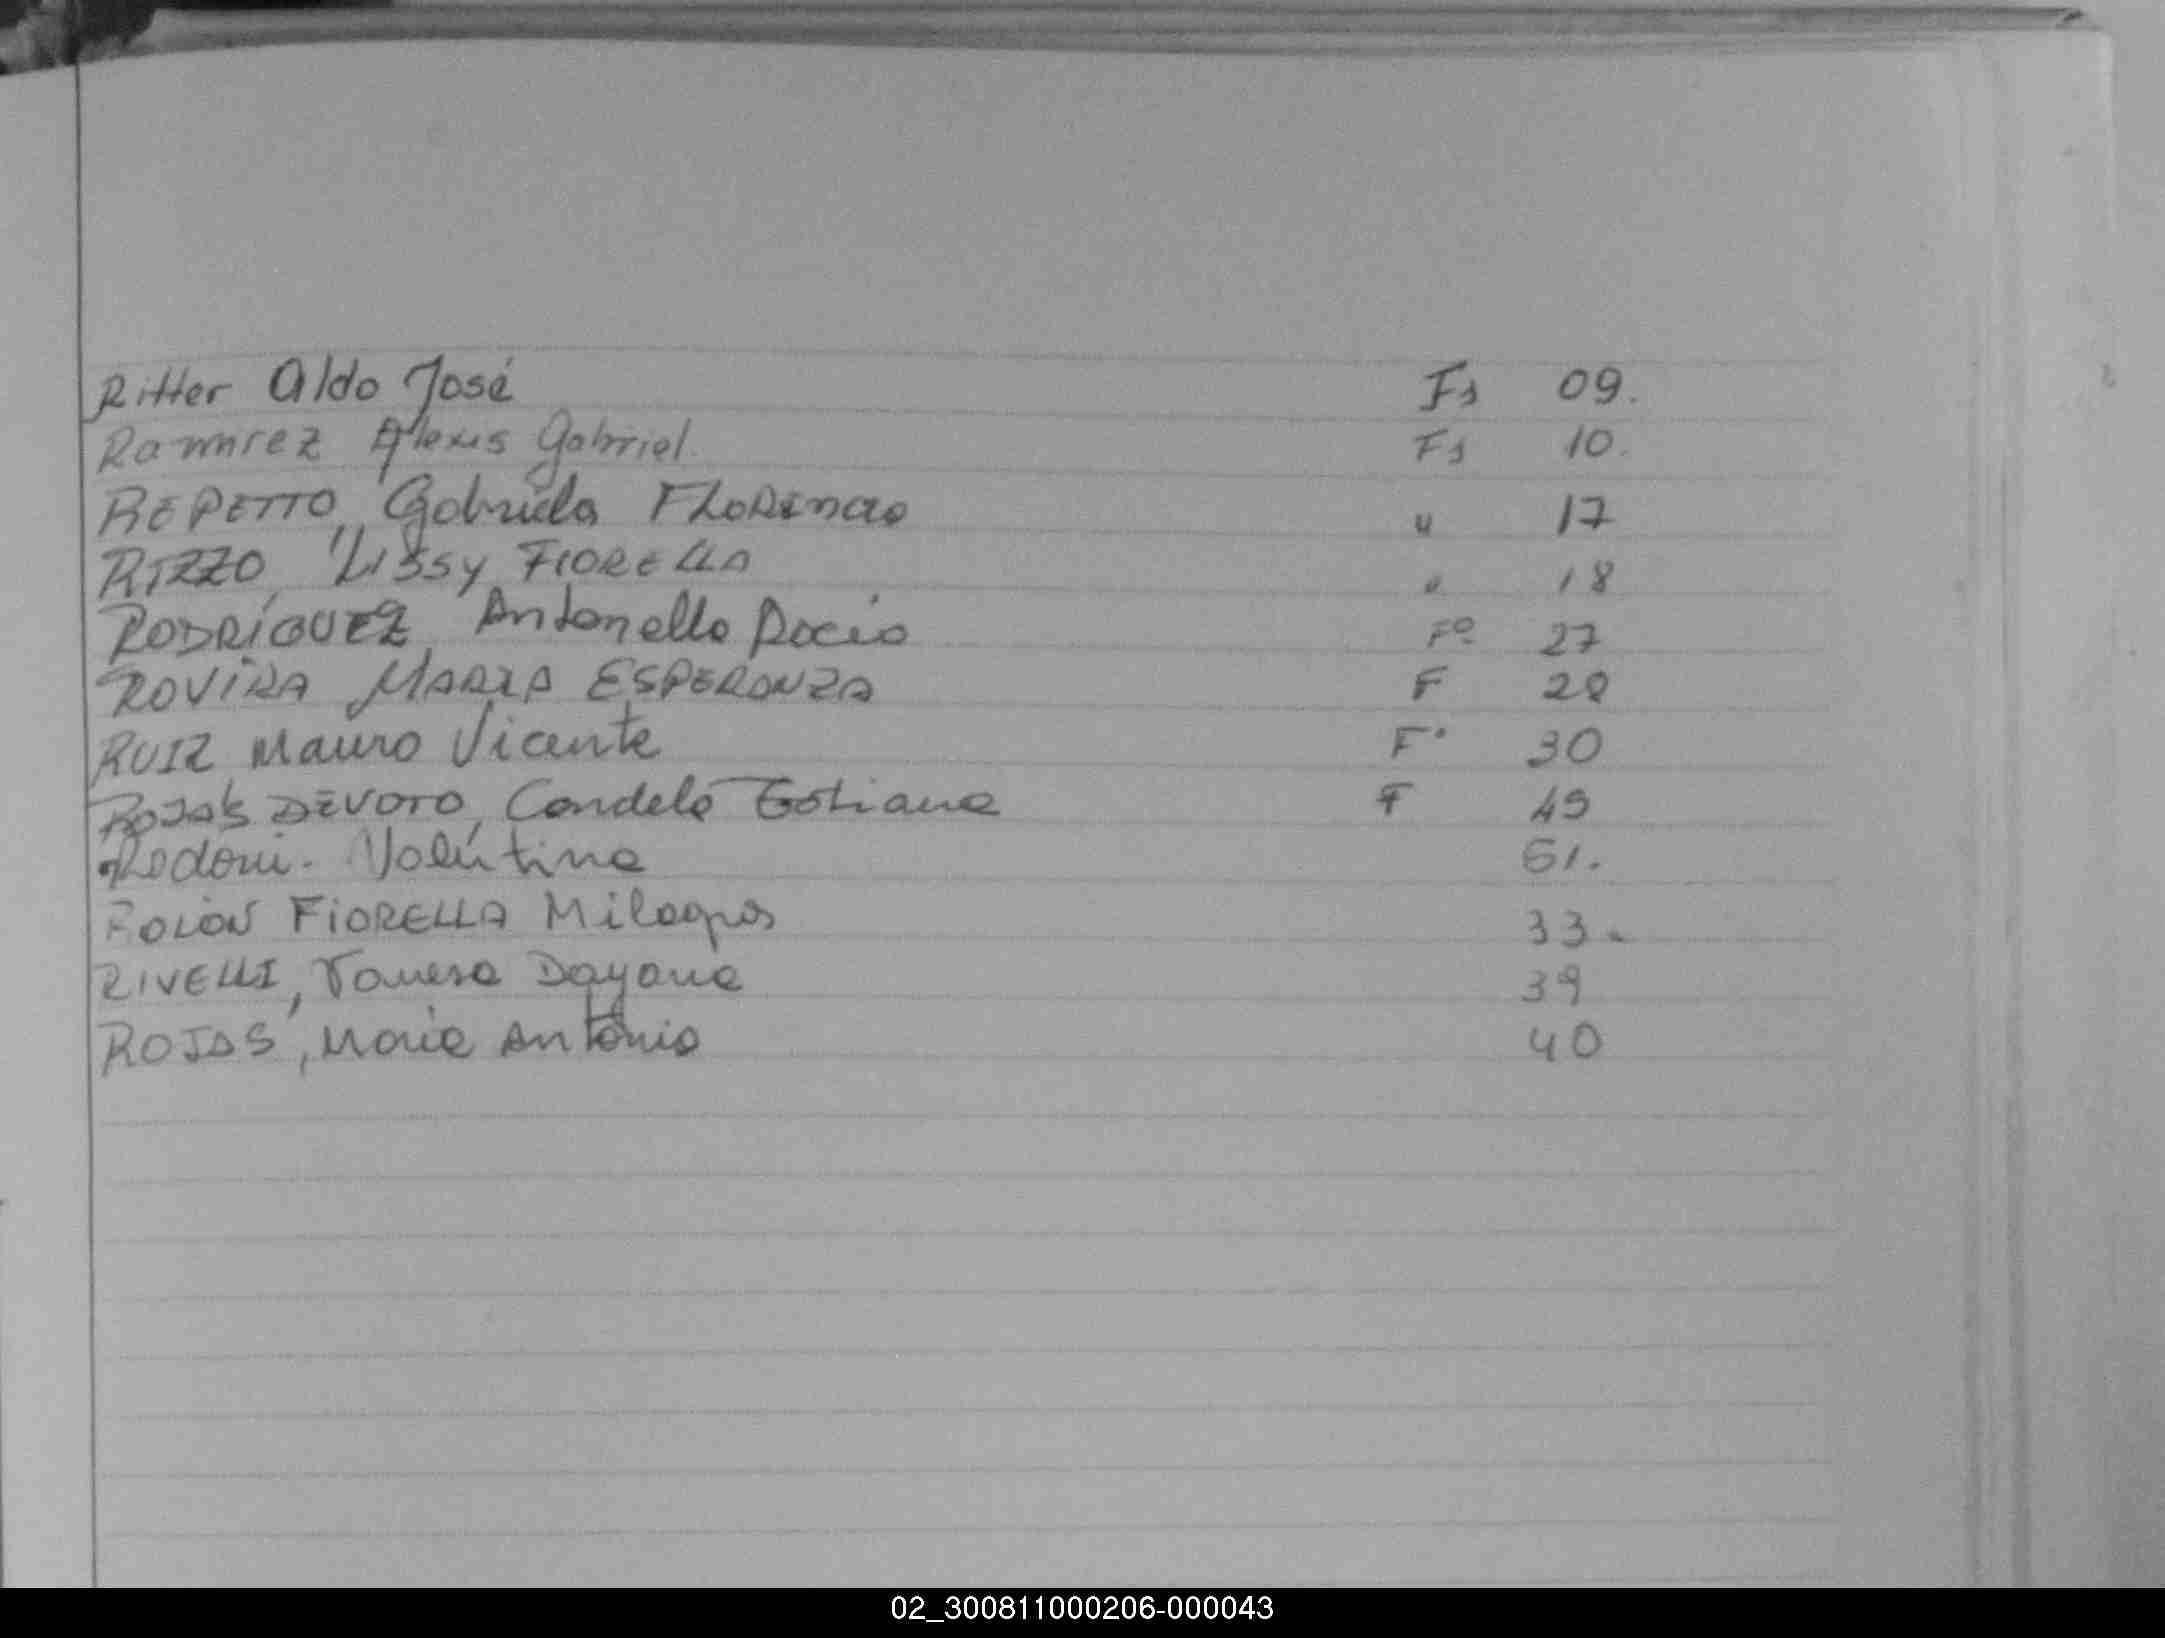 Ritter Aldo José Fs 09.
Ramirez Alexis Gabriel. Fs 10.
REPETTO, Gabriela FLORENCIA " 17
RIZZO, Lissy FIORELLA " 18
RODRÍGUEZ, Antonella Rocío Fº 27
ROVIRA MARIA ESPERANZA F 28
RUIZ Mauro Vicente F° 30
ROJAS DEVOTO, Candela F 49
Redoni. Valentina 51.
ROLÓN FIORELLA Milagros 33.
RIVELLI, Vanesa Dayana 39
ROJAS, Maria Antonia 40
02_300811000206-000043